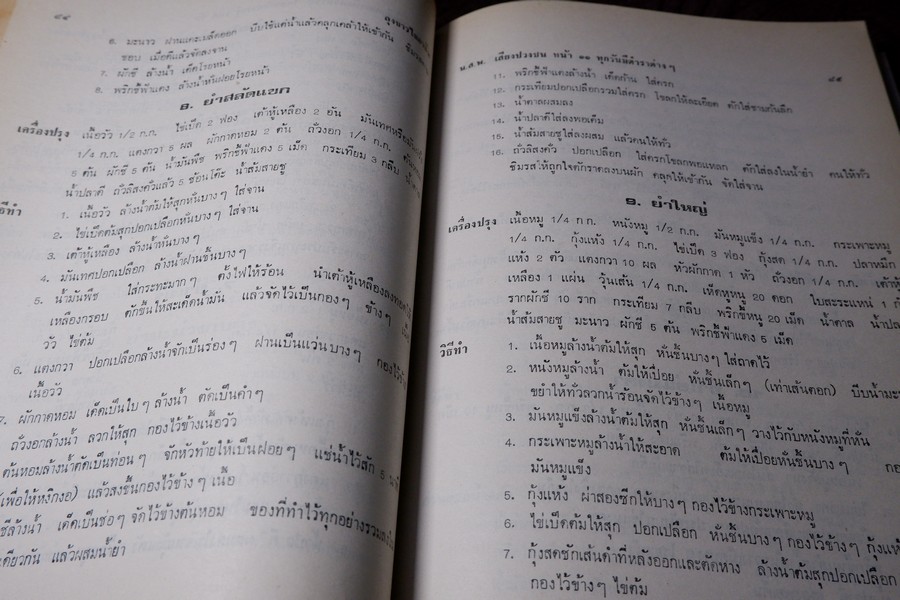 ๔๔
6. มะนาว ฝานแคะเมล็ดออก บีบใช้แต่น้ำแล้วคลุกเคล้าให้เข้ากัน
ชอบ เมื่อดีแล้วจัดลงจาน
7. ผักชี ล้างน้ำ เด็ดโรยหน้า
8. พริกชี้ฟ้าแดง ล้างน้ำหั่นฝอยโรยหน้า
8. ยำสลัดแขก
เครื่องปรุง เนื้อวัว 1/2 ก.ก. ไข่เป็ด 2 ฟอง เต้าหู้เหลือง 2 อัน
1/4 ก.ก. แตงกวา 5 ผล ผักกาดหอม 2 ต้น ถั่วงอก 1/4 ก.ก.
5 ต้น ผักชี 5 ต้น น้ำมันพืช พริกชี้ฟ้าแดง 5 เม็ด กระเทียม 3 กลีบ
น้ำปลาดี ถั่วลิสงคั่วแล้ว 5 ช้อนโต๊ะ น้ำส้มสายชู
วิธีทำ 1. เนื้อวัว ล้างน้ำต้มให้สุกหั่นบางๆ ใส่จาน
2. ไข่เป็ดต้มสุกปอกเปลือกหั่นบางๆ ใส่จาน
3. เต้าหู้เหลือง ล้างน้ำหั่นบางๆ
4. มันเทศปอกเปลือก ล้างน้ำฝานชิ้นบางๆ
5. น้ำมันพืช ใส่กระทะมากๆ ตั้งไฟให้ร้อน นำเต้าหู้เหลืองลงทอด
เหลืองกรอบ ตักขึ้นให้สะเด็ดน้ำมัน แล้วจัดไว้เป็นกองๆ ข้างๆ เนื้อ
วัว ไข่ต้ม
6. แตงกวา ปอกเปลือกล้างน้ำจักเป็นร่องๆ ฝานเป็นแว่นบางๆ กองไว้ข้าง
เนื้อวัว
7. ผักกาดหอม เด็ดเป็นใบๆ ล้างน้ำ ตัดเป็นคำๆ
ถั่วงอกล้างน้ำ ลวกให้สุก กองไว้ข้างเนื้อวัว
ต้นหอมล้างน้ำตัดเป็นท่อนๆ จักหัวท้ายให้เป็นฝอยๆ แช่น้ำไว้สัก 5
(เพื่อให้หงิกงอ) แล้วสงขึ้นกองไว้ข้างๆ เนื้อ
ชีล้างน้ำ เด็ดเป็นช่อๆ จัดไว้ข้างต้นหอม ของที่ทำไว้ทุกอย่างรวม
เดียวกัน แล้วผสมน้ำยำ
น.ส.พ. เสียงปวงชน หน้า ๑๑ ทุกวันมีตำราต่างๆ ๔๕
11. พริกชี้ฟ้าแดงล้างน้ำ เด็ดก้าน ใส่ครก
12. กระเทียมปอกเปลือกรวมใส่ครก โขลกให้ละเอียด ตักใส่ชามก้นลึก
13. น้ำตาลผสมลง
14. น้ำปลาดีใส่ลงพอเค็ม
15. น้ำส้มสายชูใส่ลงผสม แล้วคนให้ทั่ว
16. ถั่วลิสงคั่ว ปอกเปลือก ใส่ครกโขลกพอแหลก ตักใส่ลงในน้ำยำ คนให้ทั่ว
ชิมรสให้ถูกใจตักราดลงบนผัก คลุกให้เข้ากัน จัดใส่จาน
9. ยำใหญ่
เครื่องปรุง เนื้อหมู 1/4 ก.ก. หนังหมู 1/2 ก.ก. มันหมูแข็ง 1/4 ก.ก. กระเพาะหมู
1/4 ก.ก. กุ้งแห้ง 1/4 ก.ก. ไข่เป็ด 3 ฟอง กุ้งสด 1/4 ก.ก. ปลาหมึก
แห้ง 2 ตัว แตงกวา 10 ผล หัวผักกาด 1 หัว ถั่วงอก 1/4 ก.ก. เต้าหู้
เหลือง 1 แผ่น วุ้นเส้น 1/4 ก.ก. เห็ดหูหนู 20 ดอก ใบสะระแหน่ 1
รากผักชี 10 ราก กระเทียม 7 กลีบ พริกขี้หนู 20 เม็ด น้ำตาล น้ำปลา
น้ำส้มสายชู มะนาว ผักชี 5 ต้น พริกชี้ฟ้าแดง 5 เม็ด
วิธีทำ 1. เนื้อหมูล้างน้ำต้มให้สุก หั่นชิ้นบางๆ ใส่ลาดไว้
2. หนังหมูล้างน้ำ ต้มให้เปื่อย หั่นชิ้นเล็กๆ (เท่าเส้นตอก) บีบน้ำมะนาว
ขยำให้ทั่วลวกน้ำร้อนจัดไว้ข้างๆ เนื้อหมู
3. มันหมูแข็งล้างน้ำต้มให้สุก หั่นชิ้นเล็กๆ วางไว้กับหนังหมูที่หั่น
4. กระเพาะหมูล้างน้ำให้สะอาด ต้มให้เปื่อยหั่นชิ้นบางๆ
มันหมูแข็ง
5. กุ้งแห้ง ผ่าสองซีกให้บางๆ กองไว้ข้างกระเพาะหมู
6. ไข่เป็ดต้มให้สุก ปอกเปลือก หั่นชิ้นบางๆ กองไว้ข้างๆ กุ้งแห้ง
7. กุ้งสดชักเส้นดำที่หลังออกและตัดหาง ล้างน้ำต้มสุกปอกเปลือก
กองไว้ข้างๆ ไข่ต้ม